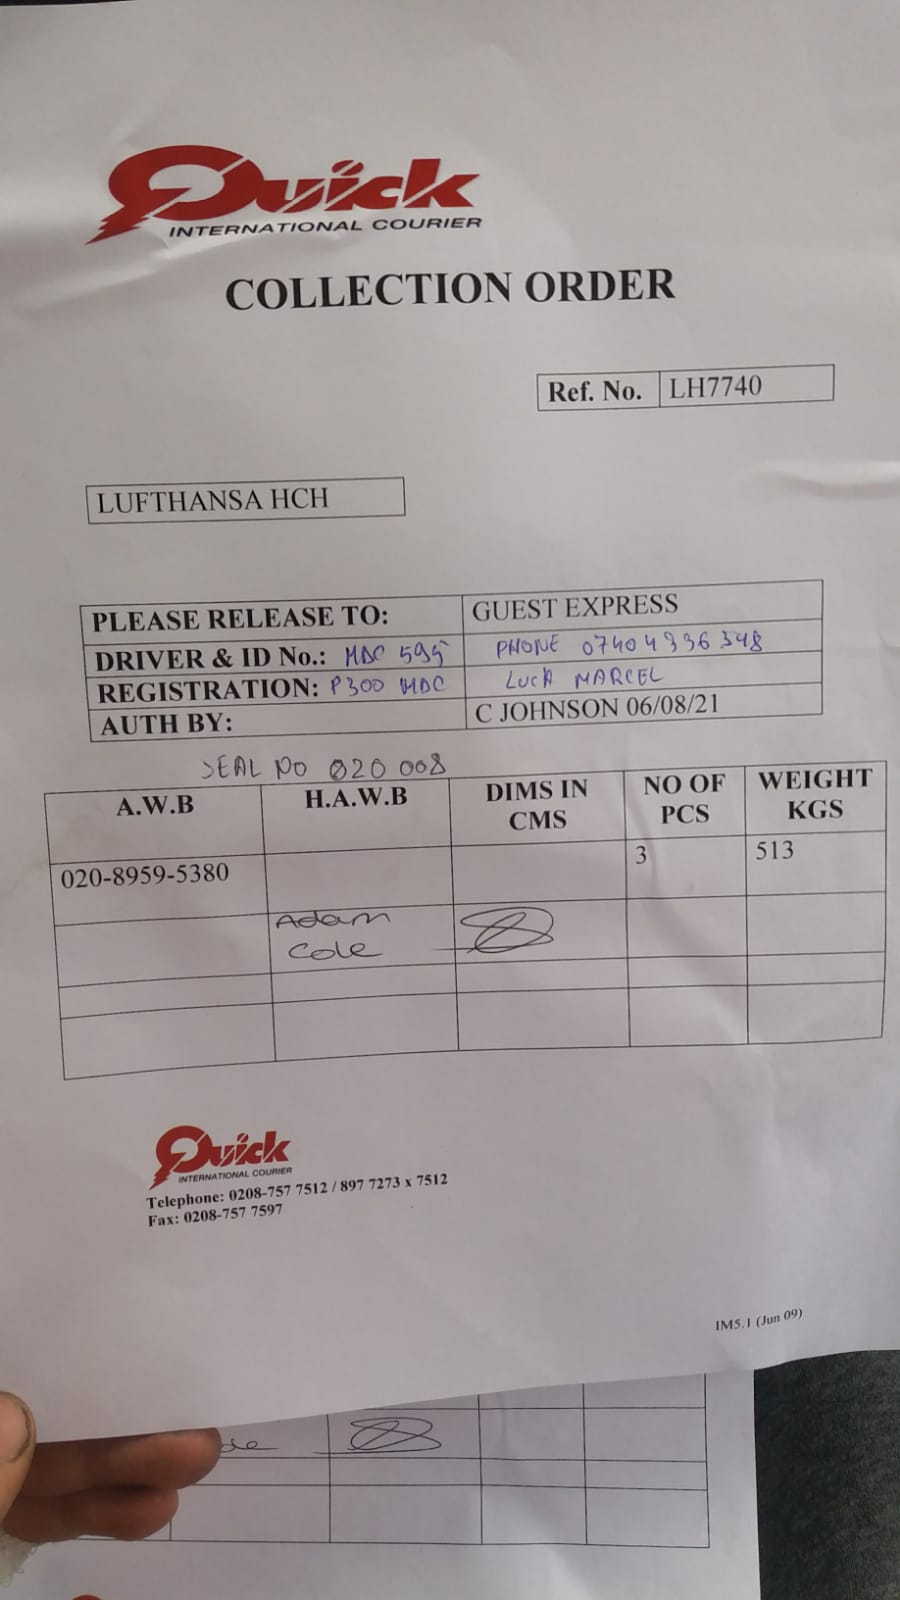 Quick
INTERNATIONAL COURIER
COLLECTION ORDER
Ref. No. LH7740
LUFTHANSA HCH
PLEASE RELEASE TO: GUEST EXPRESS
DRIVER & ID No.: MDC 595 PHONE 07404936348
REGISTRATION: P300 MDC LUCA MARCEL
AUTH BY: C JOHNSON 06/08/21
SEAL NO 020 008
A.W.B H.A.W.B DIMS IN CMS NO OF PCS WEIGHT KGS
020-8959-5380 3 513
Adam
Cole
Quick
INTERNATIONAL COURIER
Telephone: 0208-757 7512 / 897 7273 x 7512
Fax: 0208-757 7597
IM5.1 (Jun 09)